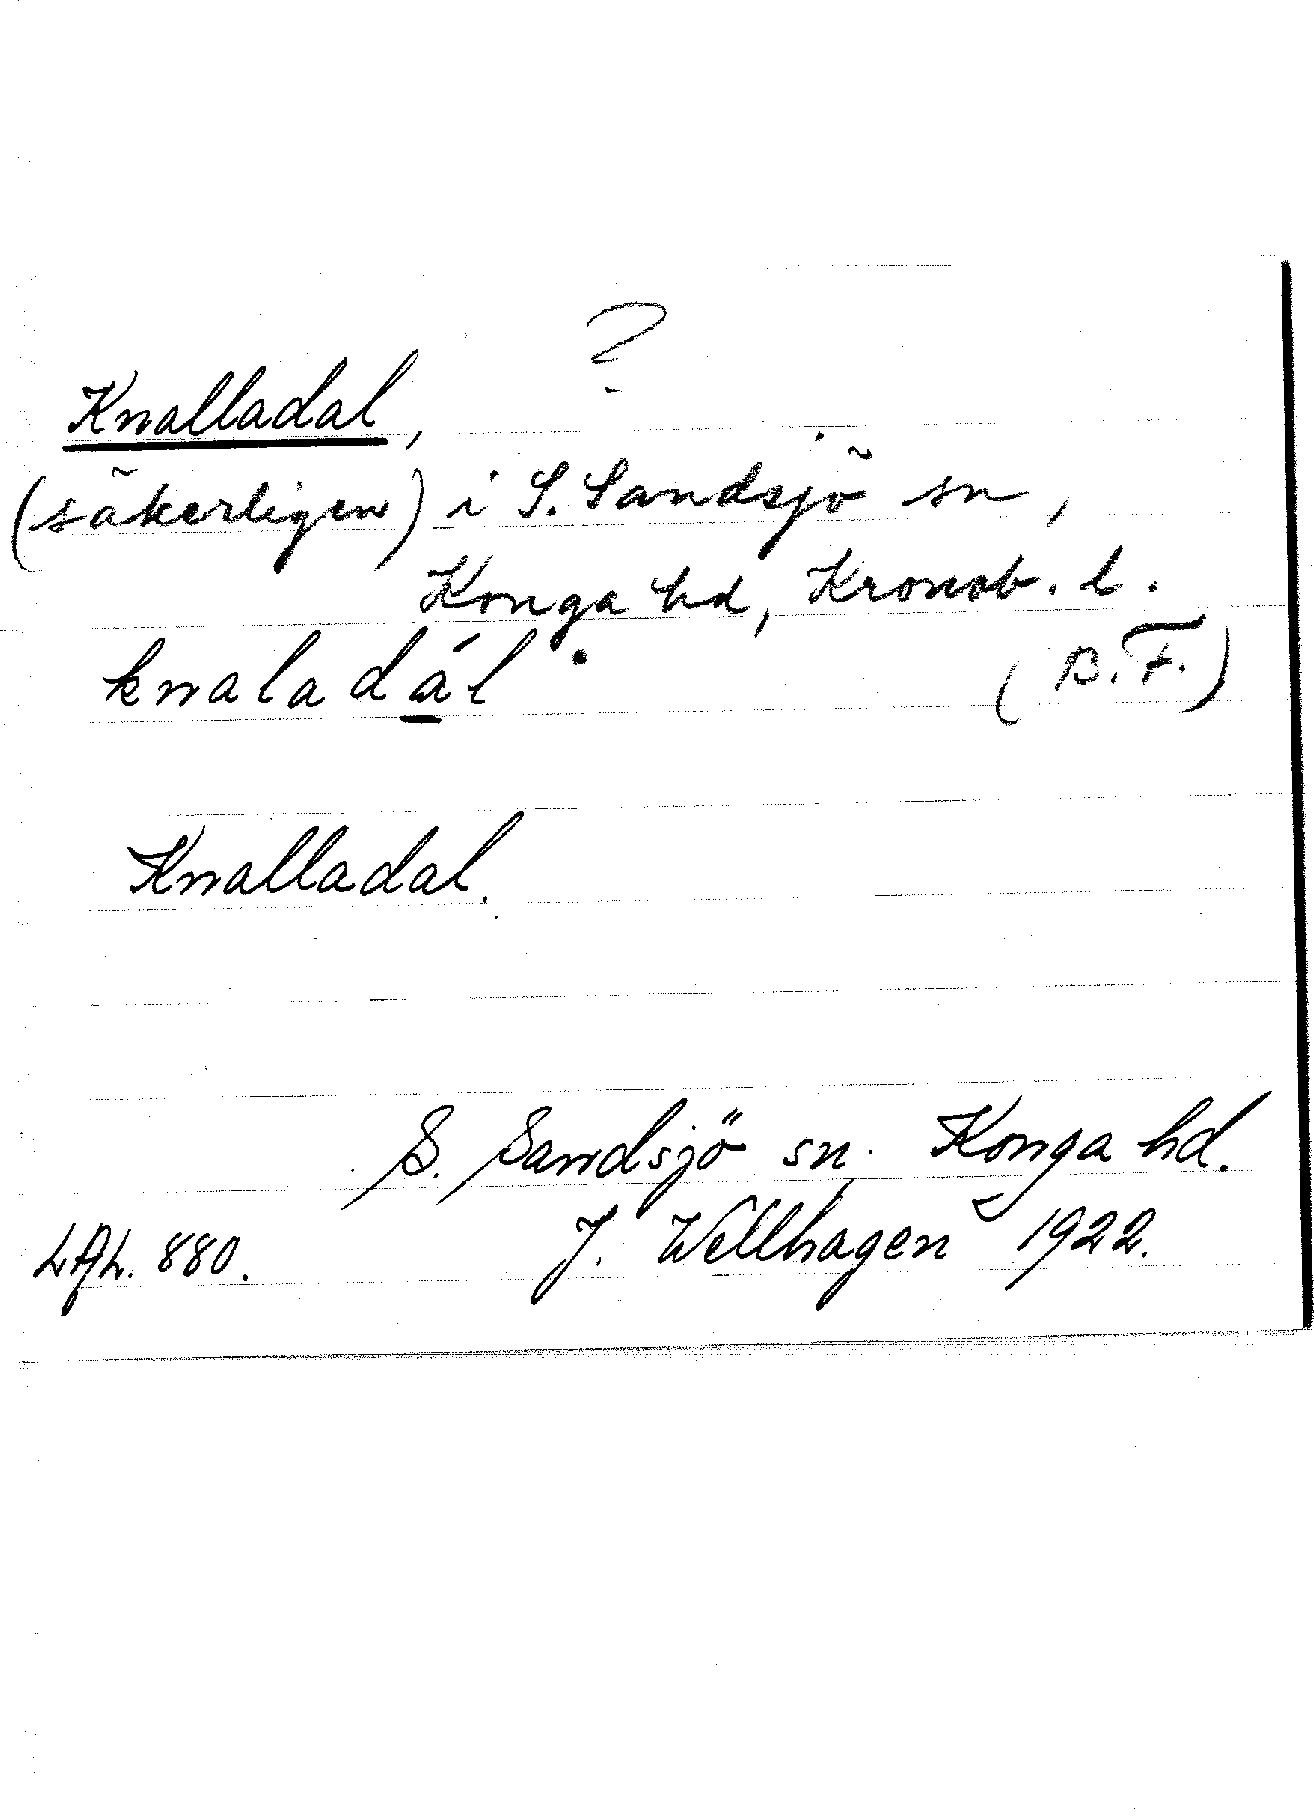 ?
Knalladal,
(säkerligen) i S. Sandsjö sn,
Konga hd, Kronob. l.
knaladál (B.F.)
Knalladal.
S. Sandsjö sn. Konga hd.
LAL. 880. J. Wellhagen 1922.